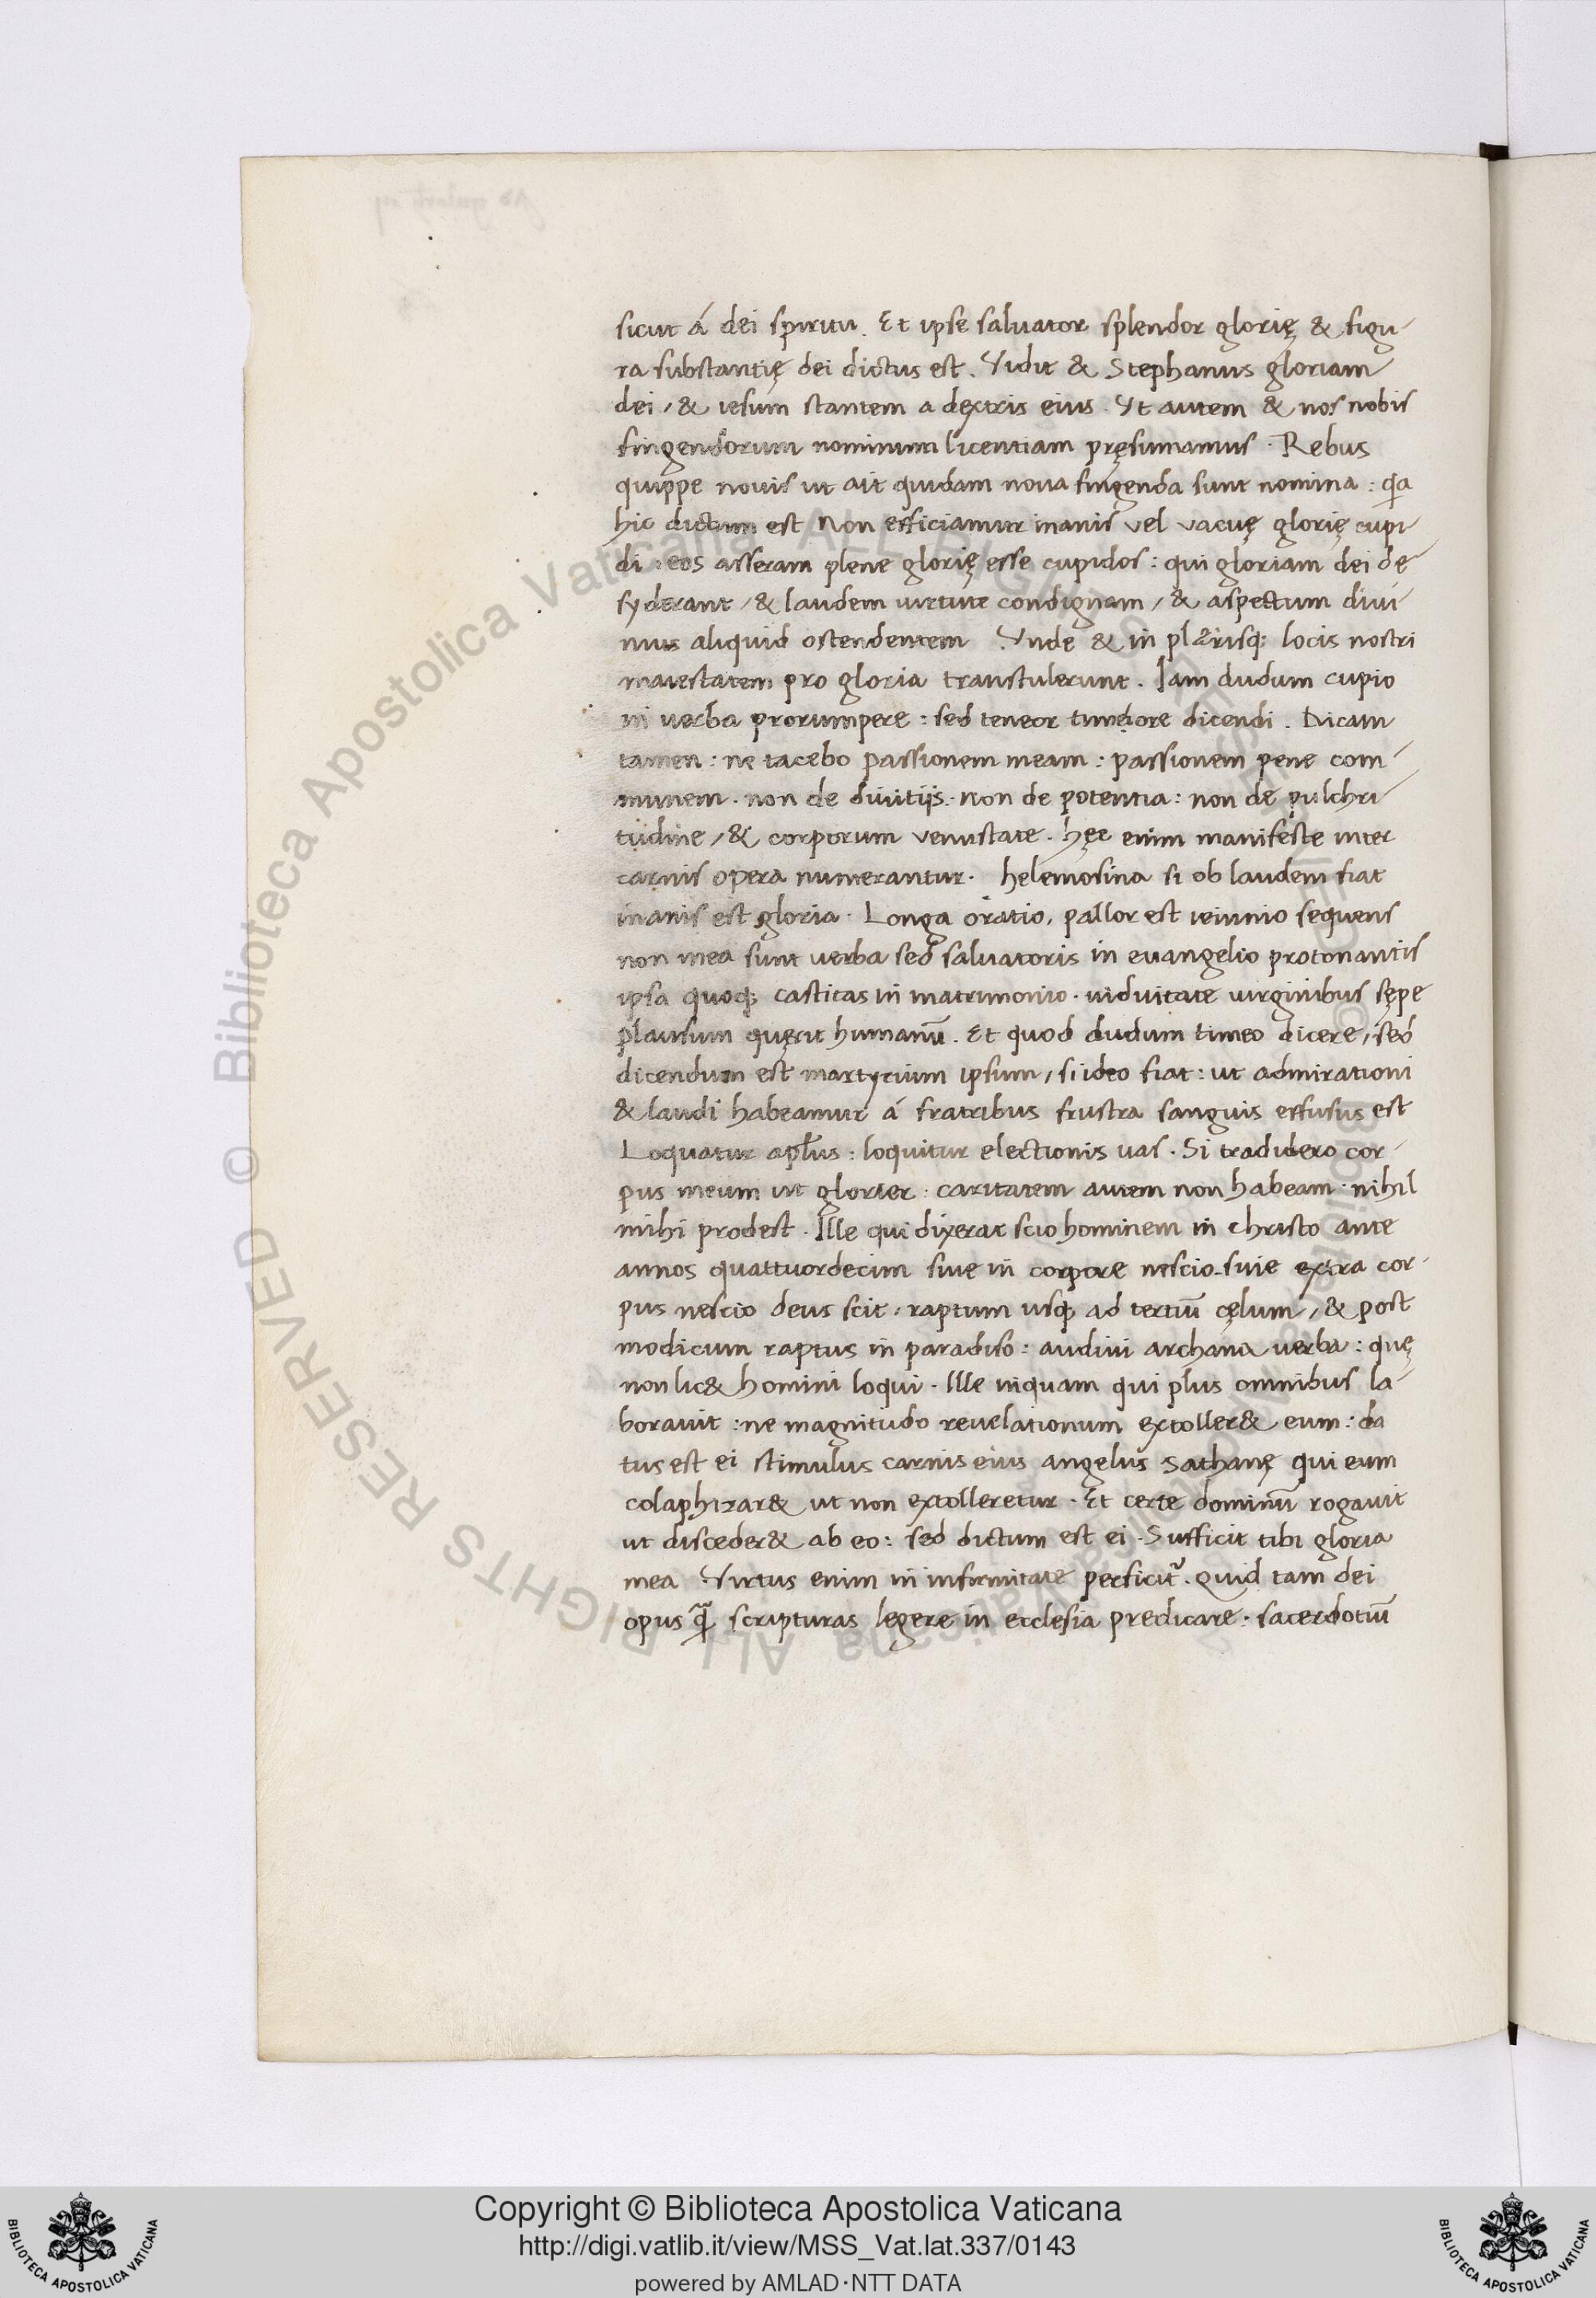 sicut á dei spiritu. Et ipse saluator splendor glorię & figu-
ra substantię dei dictus est. Vidit & Stephanus gloriam
dei, & iesum stantem a dextris eius. Vt autem & nos nobis
fingendorum nominum licentiam pręsumamus. Rebus
quippe nouis ut ait quidam noua fingenda sunt nomina: qa
hic dictum est Non efficiamur inanis vel vacuę glorię cupi-
di: eos asseram plene glorię esse cupidos: qui gloriam dei de-
syderant, & laudem uirtute condignam, & aspectum diui-
nius aliquid ostendentem Vnde & in plærisq; locis nostri
maiestatem pro gloria transtulerunt. Iam dudum cupio
in uerba prorumpere: sed teneor timore dicendi. Dicam
tamen: ne tacebo passionem meam: passionem pene com-
munem. non de diuitijs. Non de potentia: non de pulchri-
tudine, & corporum venustate. hęc enim manifeste inter
carnis opera numerantur. helemosina si ob laudem fiat
inanis est gloria. Longa oratio, pallor est ieiunio sequens
non mea sunt uerba sed saluatoris in euangelio protonantis
ipsa quoq; castitas in matrimonio. uiduitate uirginibus sępe
plausum quęrit humanū. Et quod dudum timeo dicere, sed
dicendum est martyrium ipsum, si ideo fiat: ut admirationi
& laudi habeamur á fratribus frustra sanguis effusus est
Loquatur apłus: loquitur electionis uas. Si tradidero cor-
pus meum ut glorier: caritatem autem non habeam. nihil
mihi prodest. Ille qui dixerat scio hominem in christo ante
annos quattuordecim siue in corpore nescio. suie extra cor-
pus nescio deus scit, raptum usq; ad tertiū cęlum, & post
modicum raptus in paradiso: audiui archana uerba: quę
non lic& homini loqui. Ille inquam qui plus omnibus la-
borauit: ne magnitudo reuelationum extoller& eum: da
tus est ei stimulus carnis eius angelus Sathanę qui eum
colaphizar& ut non extolleretur. Et certe dominū rogauit
ut disceder& ab eo: sed dictum est ei. Sufficit tibi gloria
mea Virtus enim in infirmitate perficit᷑. Quid tam dei
opus q̄ scripturas legere in ecclesia predicare. sacerdotiū
Copyright © Biblioteca Apostolica Vaticana
http://digi.vatlib.it/view/MSS_Vat.lat.337/0143
powered by AMLAD·NTT DATA